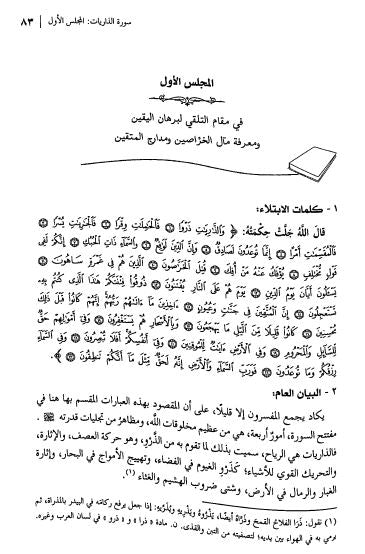 سورة الذاريات: المجلس الأول | ٨٣
المجلس الأول
في مقام التلقي لبرهان اليقين
ومعرفة مآل الخرّاصين ومدارج المتقين
١ - كلمات الابتلاء:
قال اللهُ جَلَّتْ حِكْمَتُهُ: ﴿ وَالذَّارِيَاتِ ذَرْوًا ۝ فَالْحَامِلَاتِ وِقْرًا ۝ فَالْجَارِيَاتِ يُسْرًا ۝
فَالْمُقَسِّمَاتِ أَمْرًا ۝ إِنَّمَا تُوعَدُونَ لَصَادِقٌ ۝ وَإِنَّ الدِّينَ لَوَاقِعٌ ۝ وَالسَّمَاءِ ذَاتِ الْحُبُكِ ۝ إِنَّكُمْ لَفِي
قَوْلٍ مُخْتَلِفٍ ۝ يُؤْفَكُ عَنْهُ مَنْ أُفِكَ ۝ قُتِلَ الْخَرَّاصُونَ ۝ الَّذِينَ هُمْ فِي غَمْرَةٍ سَاهُونَ ۝
يَسْأَلُونَ أَيَّانَ يَوْمُ الدِّينِ ۝ يَوْمَ هُمْ عَلَى النَّارِ يُفْتَنُونَ ۝ ذُوقُوا فِتْنَتَكُمْ هَذَا الَّذِي كُنْتُمْ بِهِ
تَسْتَعْجِلُونَ ۝ إِنَّ الْمُتَّقِينَ فِي جَنَّاتٍ وَعُيُونٍ ۝ آخِذِينَ مَا آتَاهُمْ رَبُّهُمْ إِنَّهُمْ كَانُوا قَبْلَ ذَلِكَ
مُحْسِنِينَ ۝ كَانُوا قَلِيلًا مِنَ اللَّيْلِ مَا يَهْجَعُونَ ۝ وَبِالْأَسْحَارِ هُمْ يَسْتَغْفِرُونَ ۝ وَفِي أَمْوَالِهِمْ حَقٌّ
لِلسَّائِلِ وَالْمَحْرُومِ ۝ وَفِي الْأَرْضِ آيَاتٌ لِلْمُوقِنِينَ ۝ وَفِي أَنْفُسِكُمْ أَفَلَا تُبْصِرُونَ ۝ وَفِي السَّمَاءِ
رِزْقُكُمْ وَمَا تُوعَدُونَ ۝ فَوَرَبِّ السَّمَاءِ وَالْأَرْضِ إِنَّهُ لَحَقٌّ مِثْلَ مَا أَنَّكُمْ تَنْطِقُونَ ۝ ﴾.
٢ - البيان العام:
يكاد يجمع المفسرون إلا قليلًا، على أن المقصود بهذه العبارات المقسم بها هنا في
مفتتح السورة، أمورٌ أربعة، هي من عظيم مخلوقات الله، ومظاهرُ من تجليات قدرته ﷻ.
فالذاريات هي الرياح، سميت بذلك لما تقوم به من الذَّرْوِ، وهو حركة العصف، والإثارة،
والتحريك القوي للأشياء؛ كَذَرْوِ الغيوم في الفضاء، وتهييج الأمواج في البحار، وإثارة
الغبار والرمال في الأرض، وشتى ضروب الهشيم والغثاء (١).
(١) نقول: ذَرَا الفلاحُ القمحَ وذَرَّاهُ أيضًا، يَذْرُوهُ ويَذْرِيهِ ويُذَرِّيهِ: إذا جعل يرفع ركامته في البيدر بالمذراة، ثم
يرمي به في الهواء بين يديها؛ لتصفيته من التبن والقذى. ن. مادة « ذرا » و « ذرو » في لسان العرب وغيره.